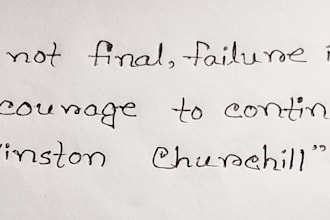 not final, failure i
courage to contin
inston Churchill"